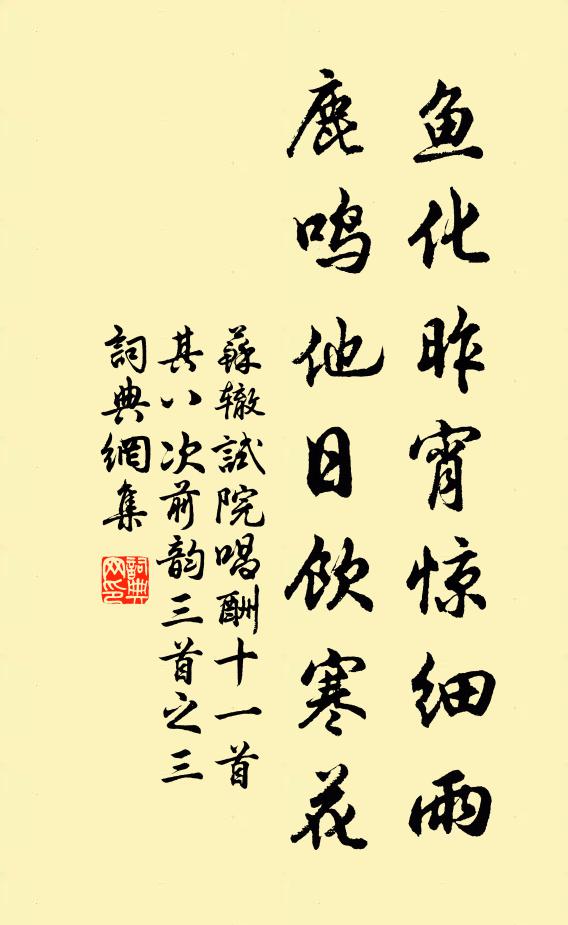 鱼化昨宵惊细雨
鹿鸣他日饮寒花
蘇辙試院唱酬十一首
其八次前韵三首之三
詞典網集
詞典
网印